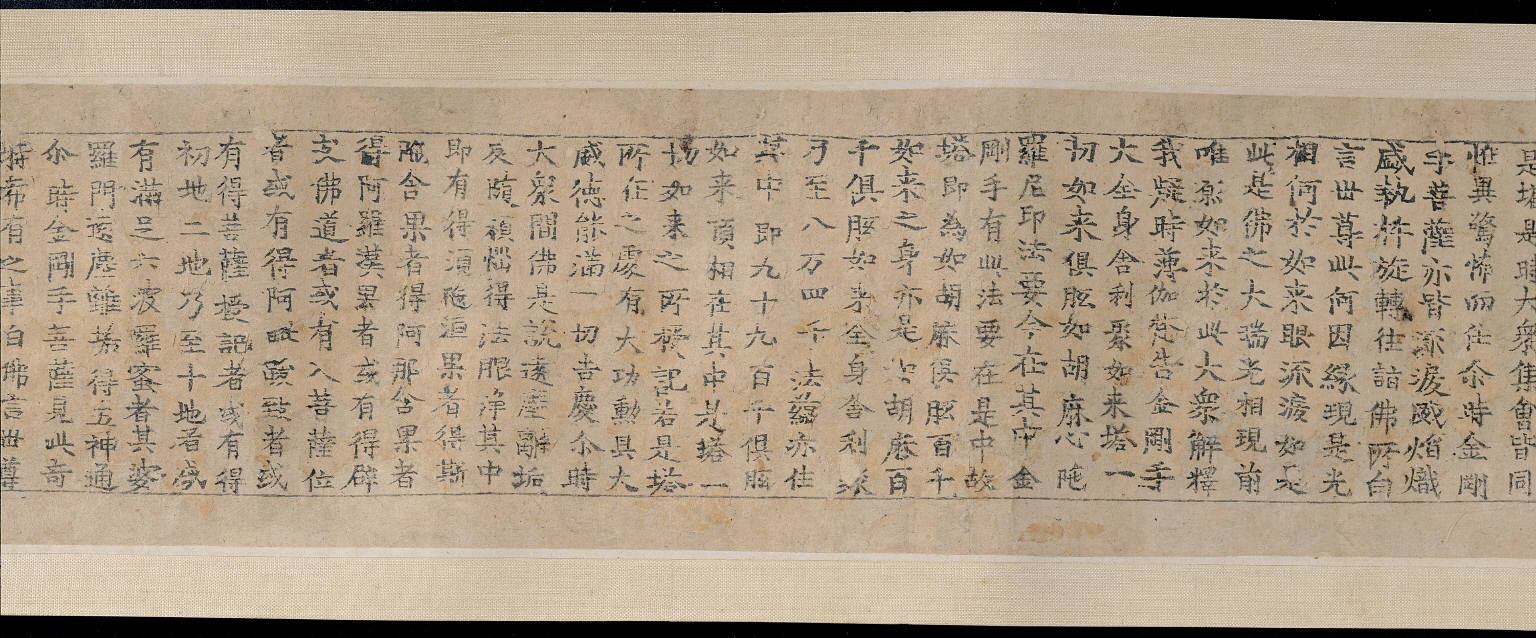 是塔是時大衆集會皆同
恠異驚怖而住尒時金剛
手菩薩亦皆流淚威焰熾
盛執杵旋轉往詣佛所白
言世尊此何因緣現是光
相何於如来眼流淚如是
此是佛之大瑞光相現前
唯願如来於此大衆解釋
我疑時薄伽梵告金剛手
大全身舍利聚如来塔一
切如来俱胝如胡麻心陁
羅尼印法要今在其中金
剛手有此法要在是中故
塔即為如胡麻俱胝百千
如来之身亦是如胡麻百
千俱胝如来全身舍利聚
乃至八万四千法蘊亦住
其中即九十九百千俱胝
如来頂相在其中是塔一
切如来之所授記若是塔
所在之處有大功勳具大
威德能滿一切吉慶尒時
大衆聞佛是說遠塵離垢
及隨煩惱得法眼淨其中
即有得湏陁洹果者得斯
陁含果者得阿那含果者
得阿羅漢果者或有得辟
支佛道者或有入菩薩位
者或有得阿毗跋致者或
有得菩薩授記者或有得
初地二地乃至十地者或
有滿足六波羅蜜者其婆
羅門遠塵離垢得五神通
尒時金剛手菩薩見此奇
特希有之事白佛言世尊